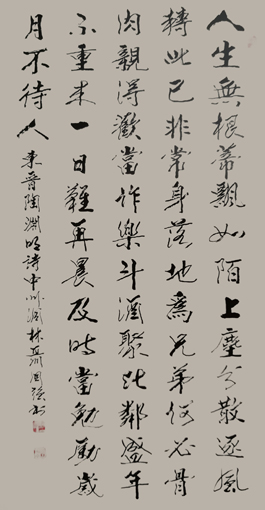 人生無根蒂飄如陌上塵分散逐風
轉此已非常身落地為兄弟何必骨
肉親得歡當作樂斗酒聚比鄰盛年
不重來一日難再晨及時當勉勵歲
月不待人
東晉陶淵明詩